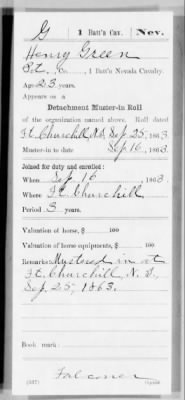 G 1 Batt'n Cav. Nev.
Henry Green
Pvt., Co. , 1 Batt'n Nevada Cavalry.
Age 23 years.
Appears on a
Detachment Muster-in Roll
of the organization named above. Roll dated
Ft. Churchill, N.T., Sep 25, 1863.
Muster-in to date Sep 16, 1863.
Joined for duty and enrolled:
When Sep 16, 1863
Where Ft. Churchill
Period 3 years.
Valuation of horse, $ 100
Valuation of horse equipments, $ 100
Remarks: Mustered in at
Ft. Churchill, N. T.,
Sep 25, 1863.
Book mark:
Falconer
(337) Copyist.